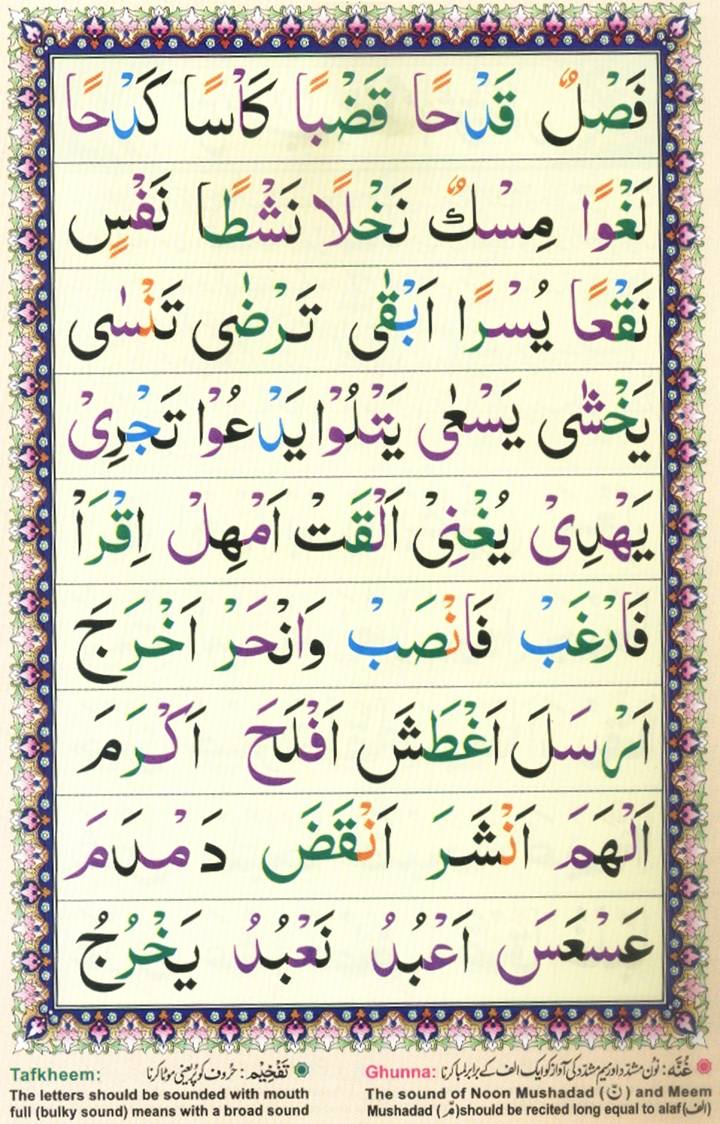 فَصْلٌ قَدْحًا قَضْبًا كَاْسًا كَدْحًا
لَغْوًا مِسْكٌ نَخْلًا نَشْطًا نَفْسٍ
نَقْعًا يُسْرًا اَبْقٰى تَرْضٰى تَنْسٰى
يَخْشٰى يَسْعٰى يَتْلُوْا يَدْعُوْا تَجْرِىْ
يَهْدِىْ يُغْنِىْ اَلْقَتْ اَمْهِلْ اِقْرَاْ
فَارْغَبْ فَانْصَبْ وَانْحَرْ اَخْرَجَ
اَرْسَلَ اَغْطَشَ اَفْلَحَ اَكْرَمَ
اَلْهَمَ اَنْشَرَ اَنْقَضَ دَمْدَمَ
عَسْعَسَ اَعْبُدُ نَعْبُدُ يَخْرُجُ
غُنَّه: نون مشدّد اور میم مشدّد کی آواز کو ایک الف کے برابر لمبا کرنا
Ghunna:
The sound of Noon Mushadad (نّ) and Meem
Mushadad (مّ) should be recited long equal to alaf (الف)
تَفْخِیْم: حروف کو پُر یعنی موٹا کرنا
Tafkheem:
The letters should be sounded with mouth
full (bulky sound) means with a broad sound